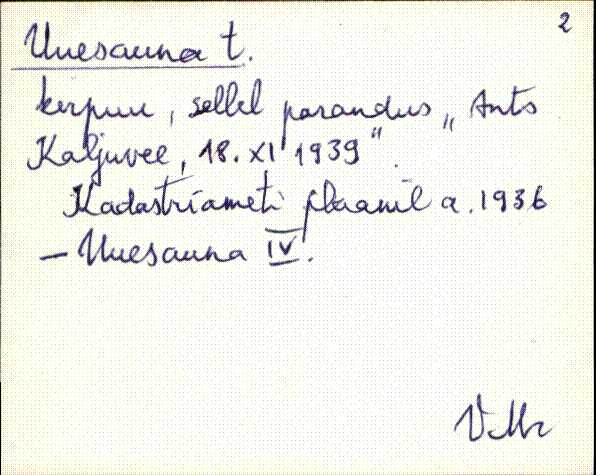 2
Uuesauna t.
kerpuu, sellel parandus „Ants
Kaljuvee, 18. XI 1939".
Kadastriameti plaanil a. 1936
– Uuesauna IV.
V. Mr